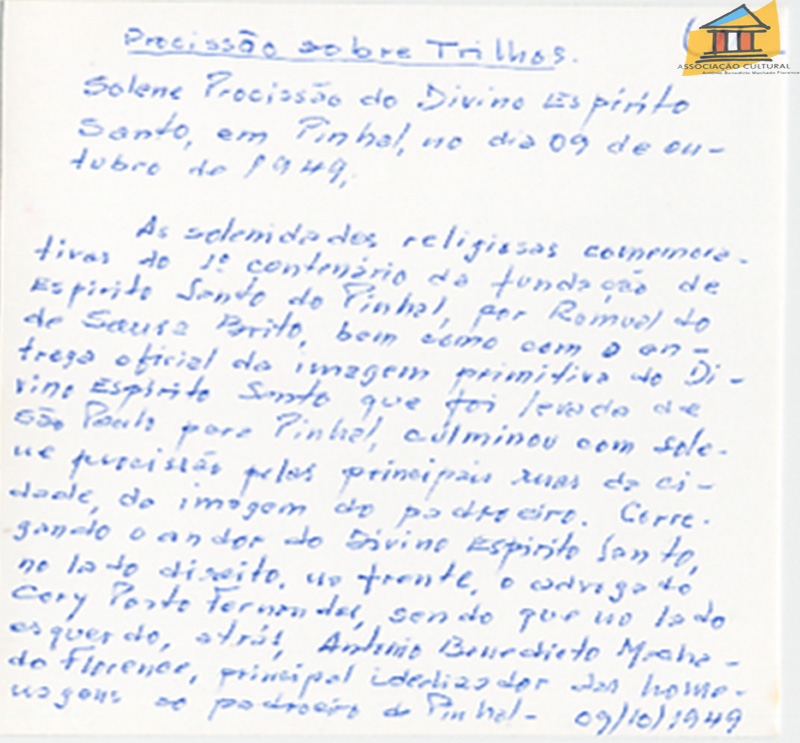 ASSOCIAÇÃO CULTURAL
Antonio Benedicto Machado Florence
Procissão sobre Trilhos.
Solene Procissão do Divino Espírito
Santo, em Pinhal, no dia 09 de ou-
tubro de 1949,
As solenidades religiosas comemora-
tivas do 1º centenário da fundação de
Espírito Santo do Pinhal, por Romualdo
de Sousa Brito, bem como com a en-
trega oficial da imagem primitiva do Di-
vino Espírito Santo que foi levada de
São Paulo para Pinhal, culminou com sole-
ne procissão pelas principais ruas da ci-
dade, da imagem do padroeiro. Carre-
gando o andor do Divino Espírito Santo,
no lado direito, na frente, o advogado
Cory Porto Fernandes, sendo que no lado
esquerdo, atrás, Antonio Benedicto Macha-
do Florence, principal idealizador das home-
nagens ao padroeiro de Pinhal - 09/10/1949